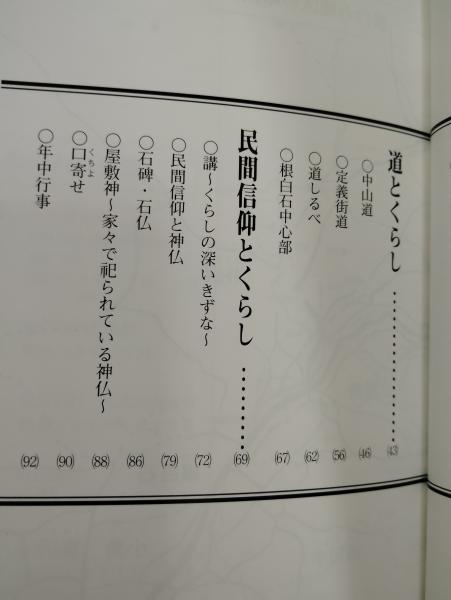 道とくらし ‥‥‥‥‥‥‥‥‥ (43)
○中山道 (46)
○定義街道 (56)
○道しるべ (62)
○根白石中心部 (67)
民間信仰とくらし ‥‥‥‥ (69)
○講～くらしの深いきずな～ (72)
○民間信仰と神仏 (79)
○石碑・石仏 (86)
○屋敷神～家々で祀られている神仏～ (88)
○口寄せ (90)
くちよ
○年中行事 (92)